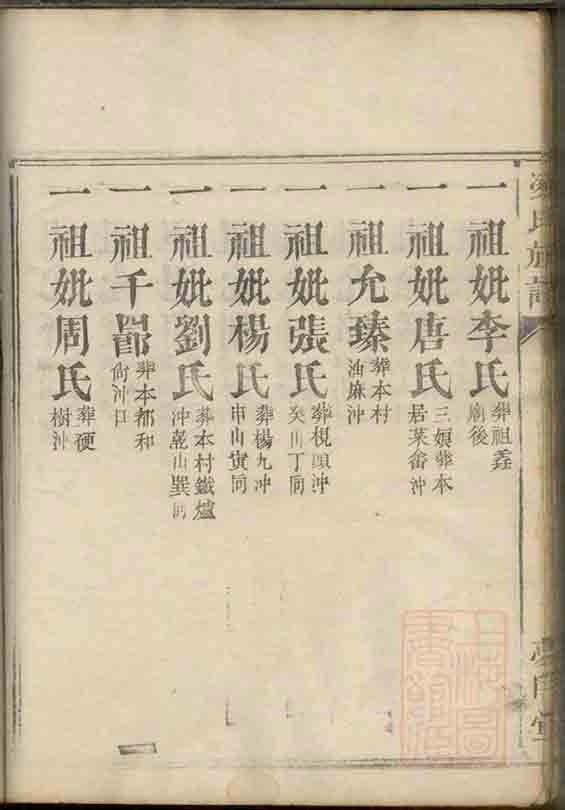 一祖妣李氏 葬祖螽廟後
一祖妣唐氏 三嬪葬本居菜畬沖
一祖允臻 葬本村油麻沖
一祖妣張氏 葬梘頭沖癸山丁向
一祖妣楊氏 葬楊九冲申山寅向
一祖妣劉氏 葬本村鐵爐沖乾山巽向
一祖千 葬本都和尙沖口
一祖妣周氏 葬硬樹沖
上海圖書館藏